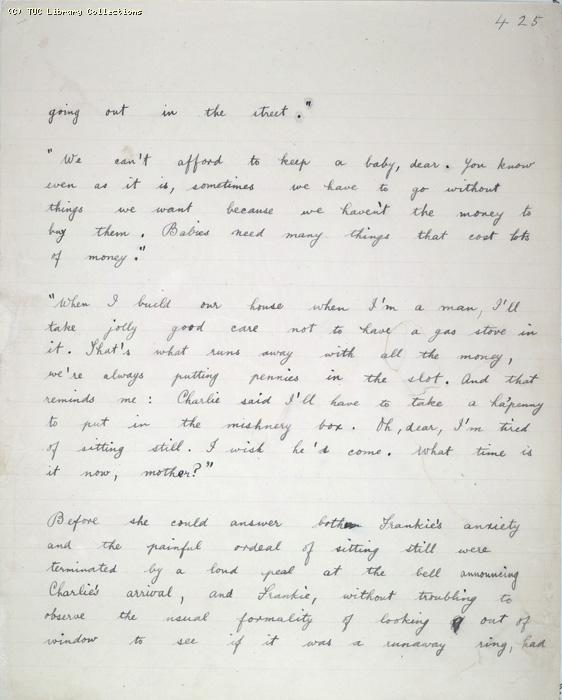 (C) TUC Library Collections
425
going out in the street."
"We can't afford to keep a baby, dear. You know
even as it is, sometimes we have to go without
things we want because we haven't the money to
buy them. Babies need many things that cost lots
of money."
"When I build our house when I'm a man, I'll
take jolly good care not to have a gas stove in
it. That's what runs away with all the money,
we're always putting pennies in the slot. And that
reminds me: Charlie said I'll have to take a ha'penny
to put in the mishnery box. Oh, dear, I'm tired
of sitting still. I wish he'd come. What time is
it now, mother?"
Before she could answer both Frankie's anxiety
and the painful ordeal of sitting still were
terminated by a loud peal at the bell announcing
Charlie's arrival, and Frankie, without troubling to
observe the usual formality of looking out of
window to see if it was a runaway ring, had